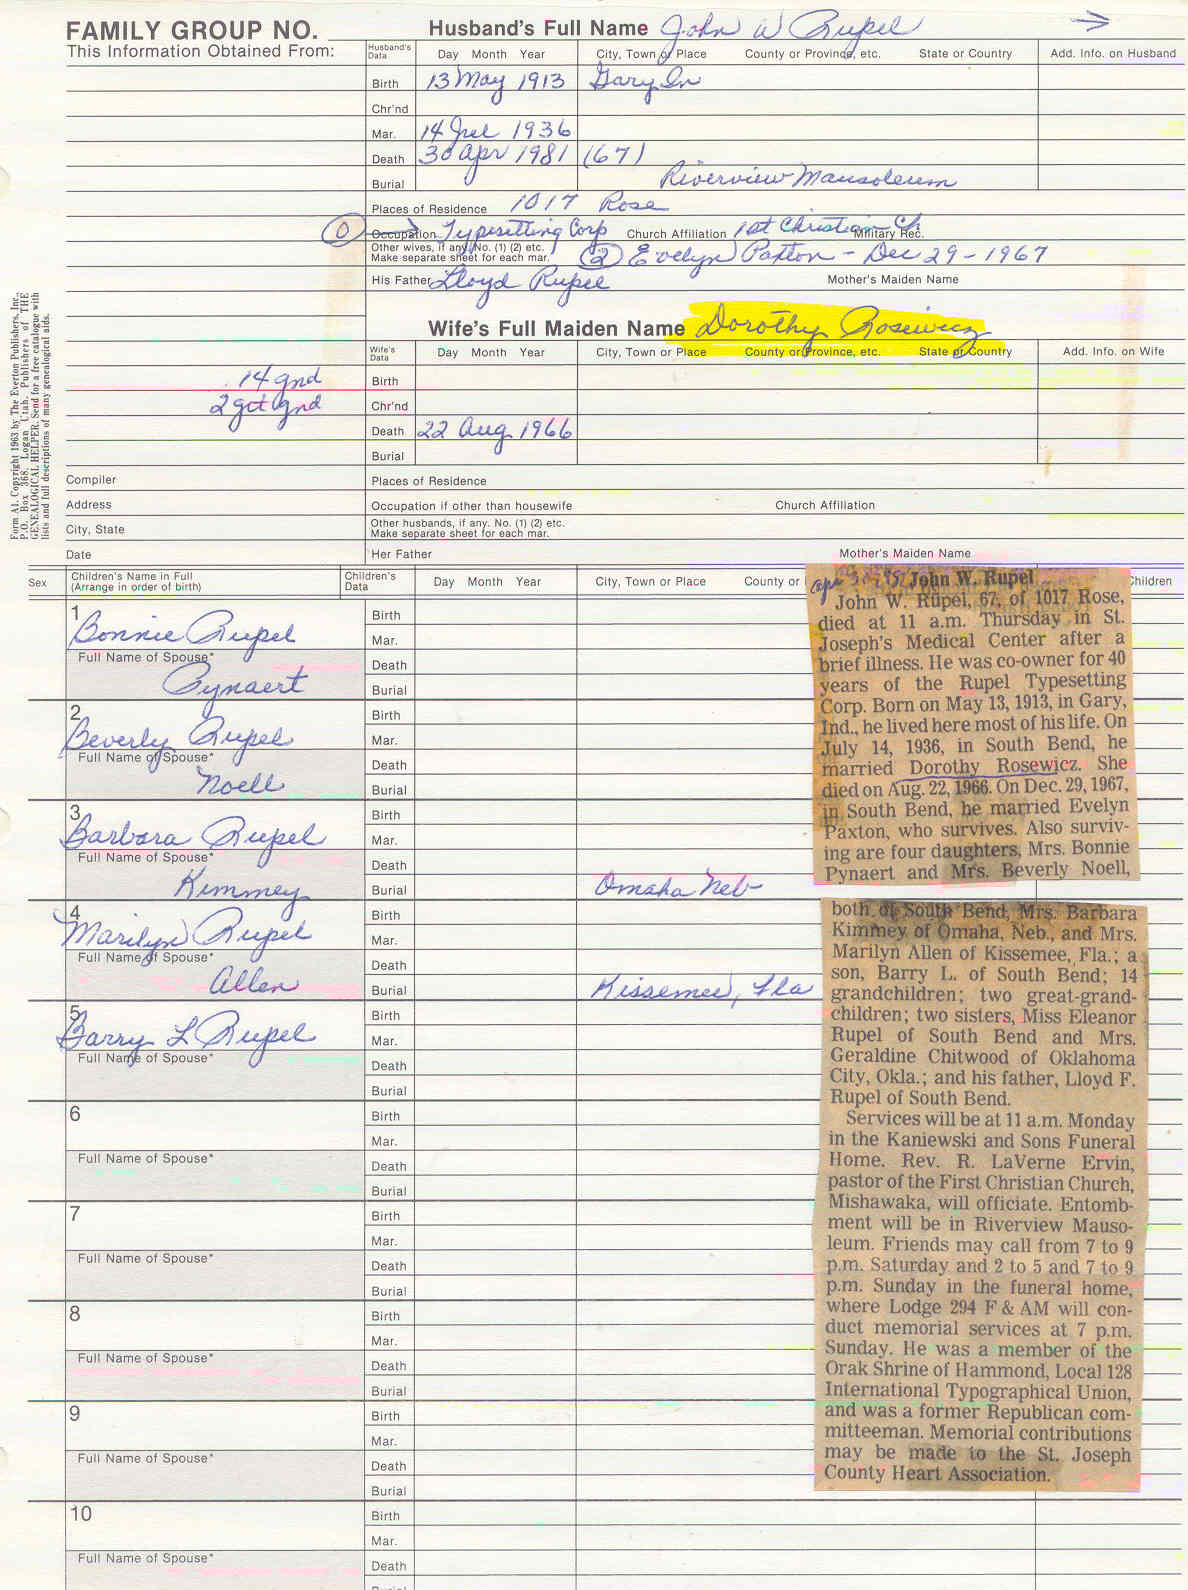 FAMILY GROUP NO.
This Information Obtained From:
Husband's Full Name John W Rupel
Husband's Data Day Month Year City, Town or Place County or Province, etc. State or Country Add. Info. on Husband
Birth 13 May 1913 Gary In
Chr'nd
Mar. 14 Jul 1936
Death 30 Apr 1981 (67)
Burial Riverview Mausoleum
Places of Residence 1017 Rose
Occupation Typesetting Corp Church Affiliation 1st Christian Ch. Military Rec.
Other wives, if any. No. (1) (2) etc.
Make separate sheet for each mar. (2) Evelyn Paxton - Dec 29 - 1967
His Father Lloyd Rupel Mother's Maiden Name
Wife's Full Maiden Name Dorothy Rosewicz
Wife's Data Day Month Year City, Town or Place County or Province, etc. State or Country Add. Info. on Wife
14 gnd Birth
2 gt gnd Chr'nd
Death 22 Aug 1966
Burial
Compiler Places of Residence
Address Occupation if other than housewife Church Affiliation
City, State Other husbands, if any. No. (1) (2) etc.
Make separate sheet for each mar.
Date Her Father Mother's Maiden Name
Form A1. Copyright 1963 by The Everton Publishers, Inc.,
P.O. Box 368, Logan Utah. Publishers of THE
GENEALOGICAL HELPER. Send for a free catalogue with
lists and full descriptions of many genealogical aids.
Sex Children's Name in Full
(Arrange in order of birth) Children's Data Day Month Year City, Town or Place County or Children
1 Birth
Bonnie Rupel Mar.
Full Name of Spouse* Death
Pynaert Burial
2 Birth
Beverly Rupel Mar.
Full Name of Spouse* Death
Noell Burial
3 Birth
Barbara Rupel Mar.
Full Name of Spouse* Death
Kimmey Burial Omaha Neb
4 Birth
Marilyn Rupel Mar.
Full Name of Spouse* Death
Allen Burial Kissemee, Fla
5 Birth
Barry L Rupel Mar.
Full Name of Spouse* Death
Burial
6 Birth
Mar.
Full Name of Spouse* Death
Burial
7 Birth
Mar.
Full Name of Spouse* Death
Burial
8 Birth
Mar.
Full Name of Spouse* Death
Burial
9 Birth
Mar.
Full Name of Spouse* Death
Burial
10 Birth
Mar.
Full Name of Spouse* Death
John W. Rupel
John W. Rupel, 67, of 1017 Rose,
died at 11 a.m. Thursday in St.
Joseph's Medical Center after a
brief illness. He was co-owner for 40
years of the Rupel Typesetting
Corp. Born on May 13, 1913, in Gary,
Ind., he lived here most of his life. On
July 14, 1936, in South Bend, he
married Dorothy Rosewicz. She
died on Aug. 22, 1966. On Dec. 29, 1967,
in South Bend, he married Evelyn
Paxton, who survives. Also surviv-
ing are four daughters, Mrs. Bonnie
Pynaert and Mrs. Beverly Noell,
both of South Bend, Mrs. Barbara
Kimmey of Omaha, Neb., and Mrs.
Marilyn Allen of Kissemee, Fla.; a
son, Barry L. of South Bend; 14
grandchildren; two great-grand-
children; two sisters, Miss Eleanor
Rupel of South Bend and Mrs.
Geraldine Chitwood of Oklahoma
City, Okla.; and his father, Lloyd F.
Rupel of South Bend.
Services will be at 11 a.m. Monday
in the Kaniewski and Sons Funeral
Home. Rev. R. LaVerne Ervin,
pastor of the First Christian Church,
Mishawaka, will officiate. Entomb-
ment will be in Riverview Mauso-
leum. Friends may call from 7 to 9
p.m. Saturday and 2 to 5 and 7 to 9
p.m. Sunday in the funeral home,
where Lodge 294 F & AM will con-
duct memorial services at 7 p.m.
Sunday. He was a member of the
Orak Shrine of Hammond, Local 128
International Typographical Union,
and was a former Republican com-
mitteeman. Memorial contributions
may be made to the St. Joseph
County Heart Association.